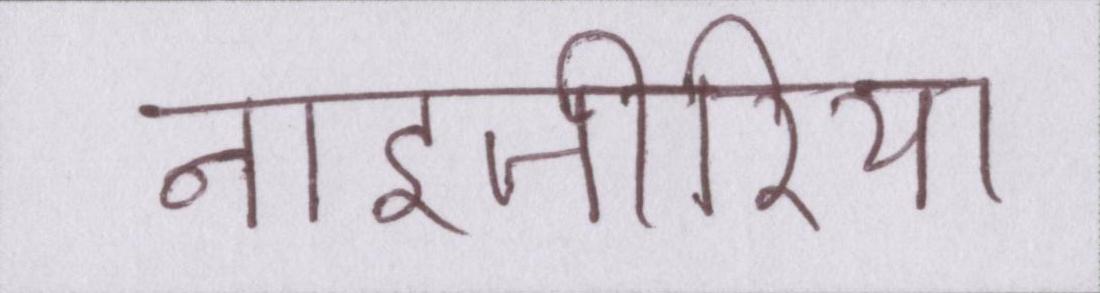 नाइजीरिया